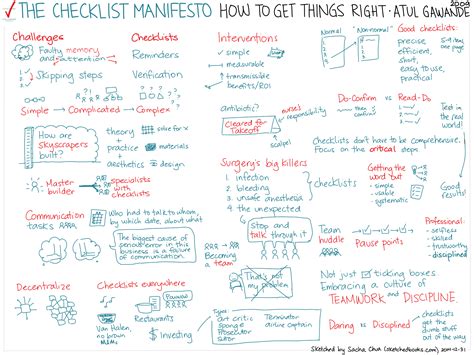 THE CHECKLIST MANIFESTO HOW TO GET THINGS RIGHT · ATUL GAWANDE
2009
Challenges
Faulty memory and attention
Skipping steps
Simple Complicated Complex
Checklists
Reminders
Verification
Interventions
simple
measurable
transmissible
benefits/ROI
Normal
Normal
Non-normal
Good checklists:
precise
efficient
short,
easy to use,
practical
5-9 items,
one page
How are
skyscrapers
built?
theory
+
practice
+
aesthetics
solve for x
materials
design
Master
builder
specialists
with
checklists
antibiotic?
Cleared for
Takeoff
nurses'
responsibility
scalpel
then
Do-Confirm vs Read-Do
Test in
the real
world!
Checklists don't have to be comprehensive.
Focus on the critical steps.
Surgery's big killers
1. infection
2. bleeding
3. unsafe anesthesia
4. the unexpected
checklists
Getting the
word out
- simple
- usable
- systematic
Good
results!
Communication
tasks
Who had to talk to whom,
by which date, about what
The biggest cause of
serious error in this
business is a failure
of communication.
Becoming
a team
Stop and
talk through it
That's not
my problem
Team
huddle
Pause points
Professional:
- selfless
- skilled
- trustworthy
- disciplined
Not just ticking boxes
Embracing a culture of
TEAMWORK AND DISCIPLINE.
Decentralize
Checklists everywhere
Van Halen,
no brown
M&Ms
Restaurants
Investing
Art critic
Sponge
Prosecutor
Suitor
Terminator
airline captain
Discipline
Get the
dumb
stuff out
of the way
Sketched by Sacha Chua (sketchedbooks.com) 2014-12-31